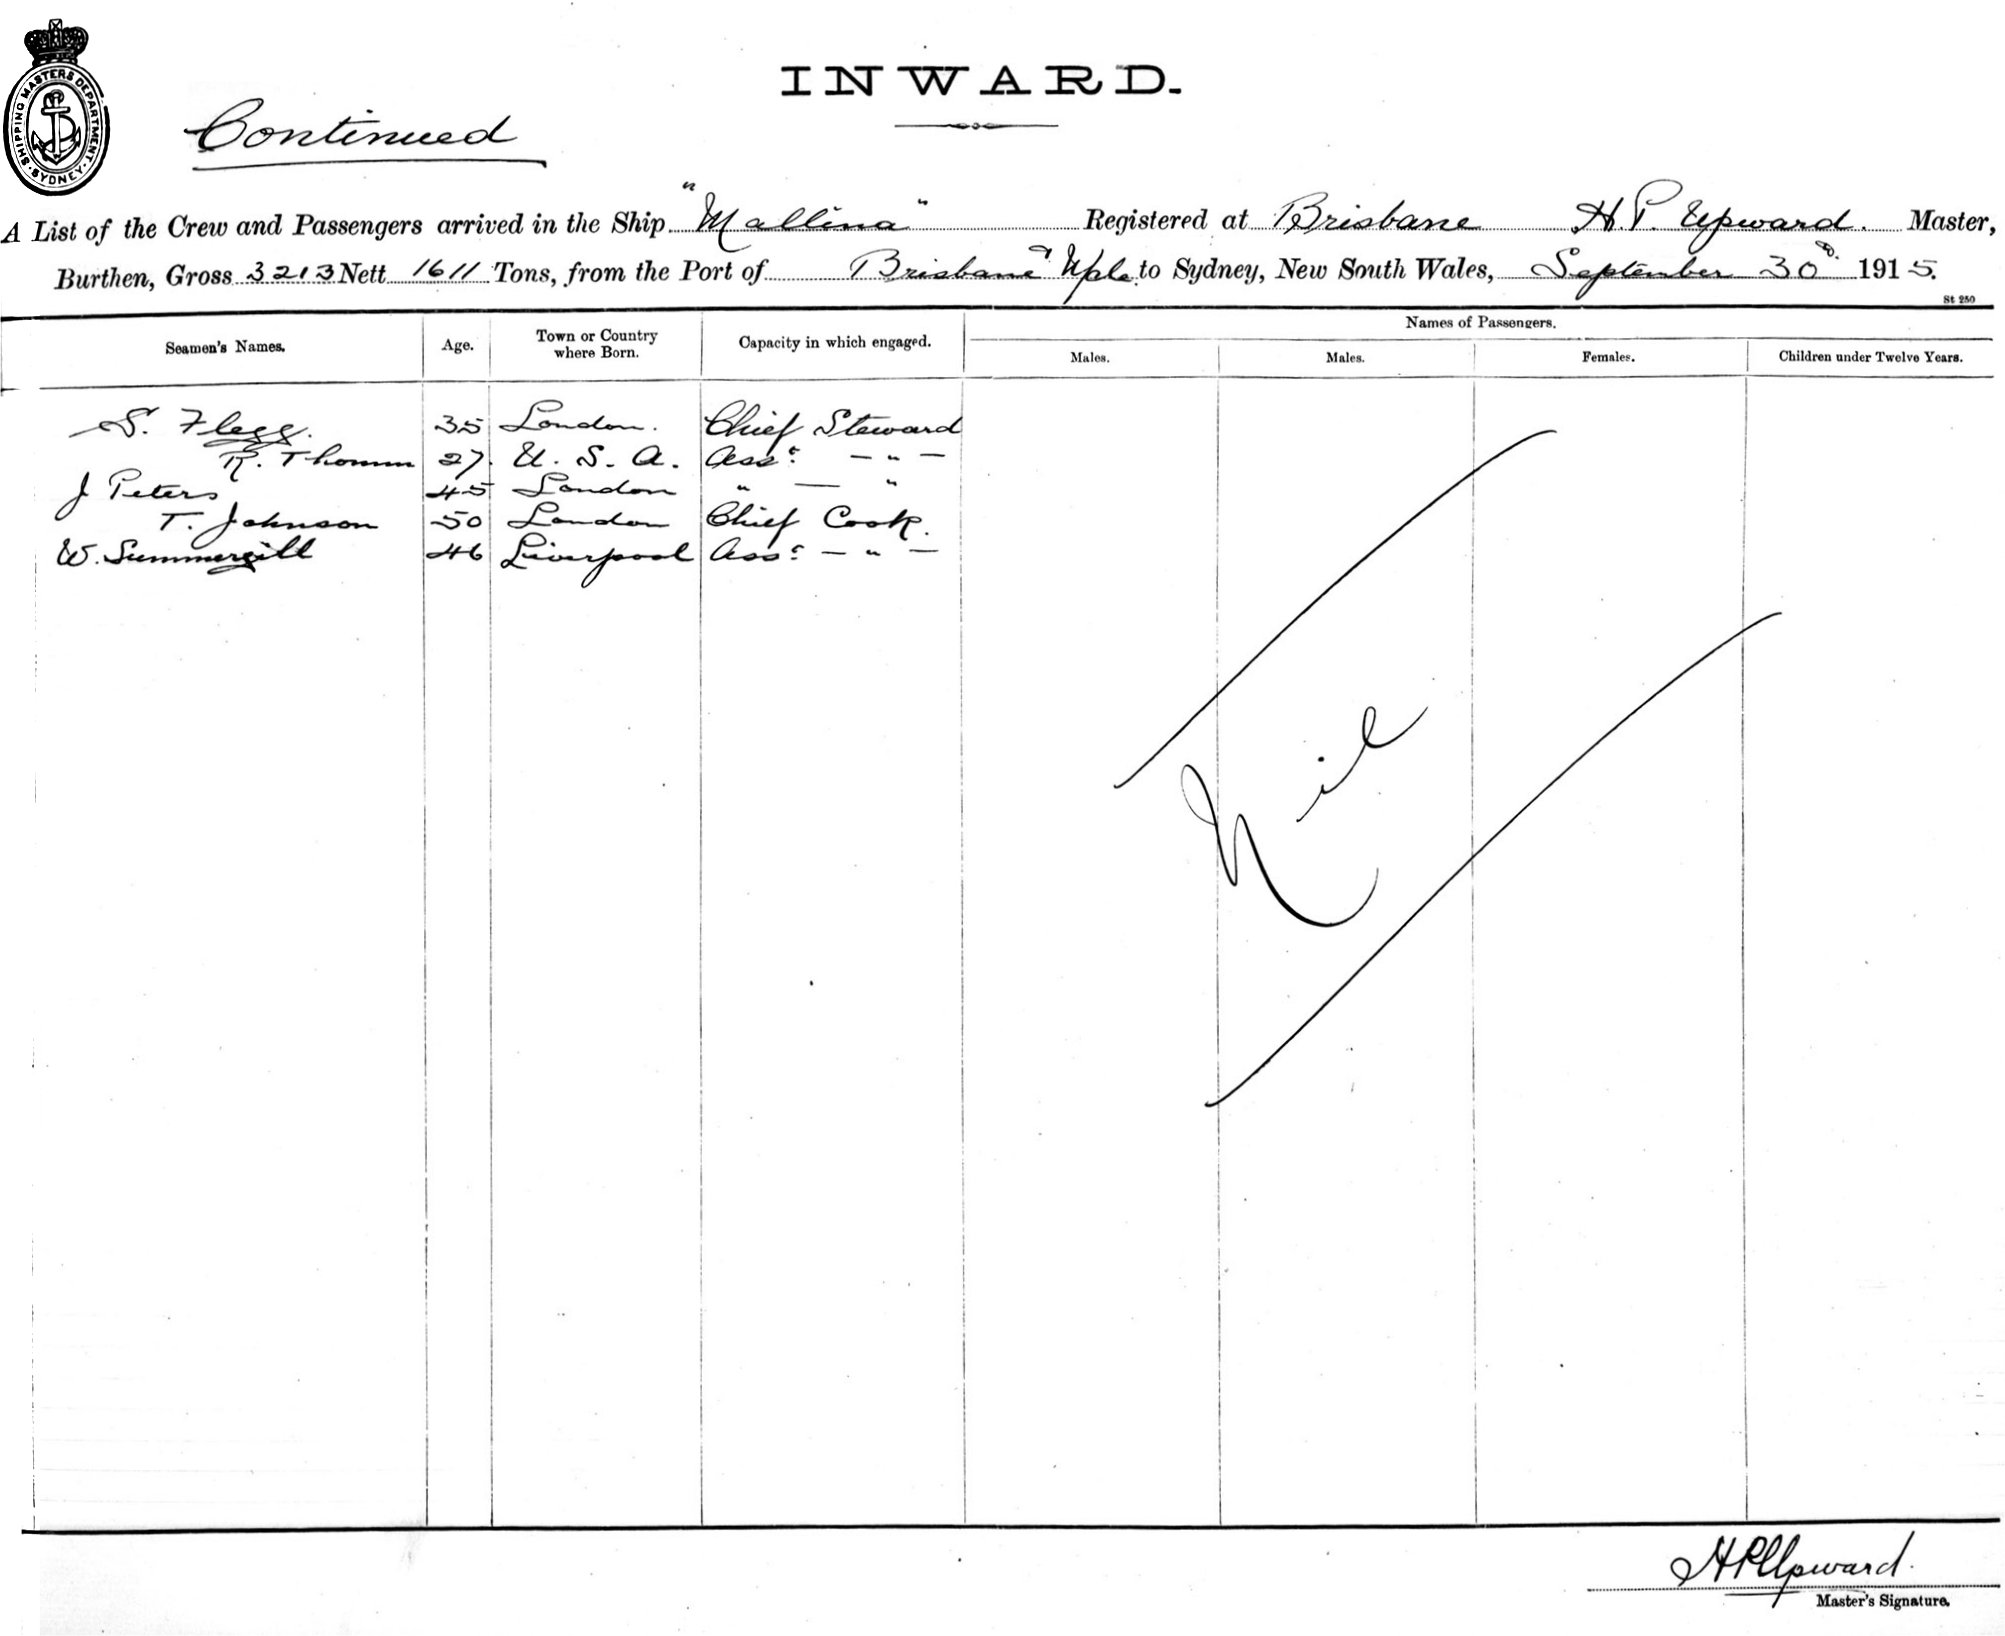 SHIPPING MASTERS DEPARTMENT. SYDNEY.
INWARD.
Continued
A List of the Crew and Passengers arrived in the Ship "Mallina" Registered at Brisbane H. P. Upward. Master,
Burthen, Gross 3213 Nett 1611 Tons, from the Port of Brisbane to Sydney, New South Wales, September 30 1915.
St 250
Seamen's Names. Age. Town or Country where Born. Capacity in which engaged. Names of Passengers.
Males. Males. Females. Children under Twelve Years.
S. Flegg. 35 London. Chief Steward
R. Thomm 27. U. S. A. Asst — " —
J Peters 45 London " — "
T. Johnson 50 London Chief Cook.
W. Summergill 46 Liverpool Asst — " —
Nil
H P Upward.
Master's Signature.